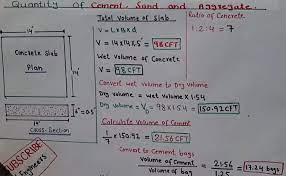 Quantity of Cement, Sand and Aggregate.
Total Volume of Slab
V = L×B×d
V = 14'×14'×5' = 98CFT
Wet volume of Concrete
V = 98CFT
Convert wet volume to Dry volume
Dry volume = wet volume × 1.54
Dry volume = V = 98×1.54 = 150.92CFT
Calculate Volume of Cement
1/7 × 150.92 = 21.56CFT
Convert to Cement bags
Volume of Cement / Volume of bag = 21.56 / 1.25 = 17.24 bags
Ratio of Concrete
1:2:4 = 7
14'
Concrete Slab
Plan
14'
6"=0.5'
14'
Cross-Section
SUBSCRIBE
Engineers